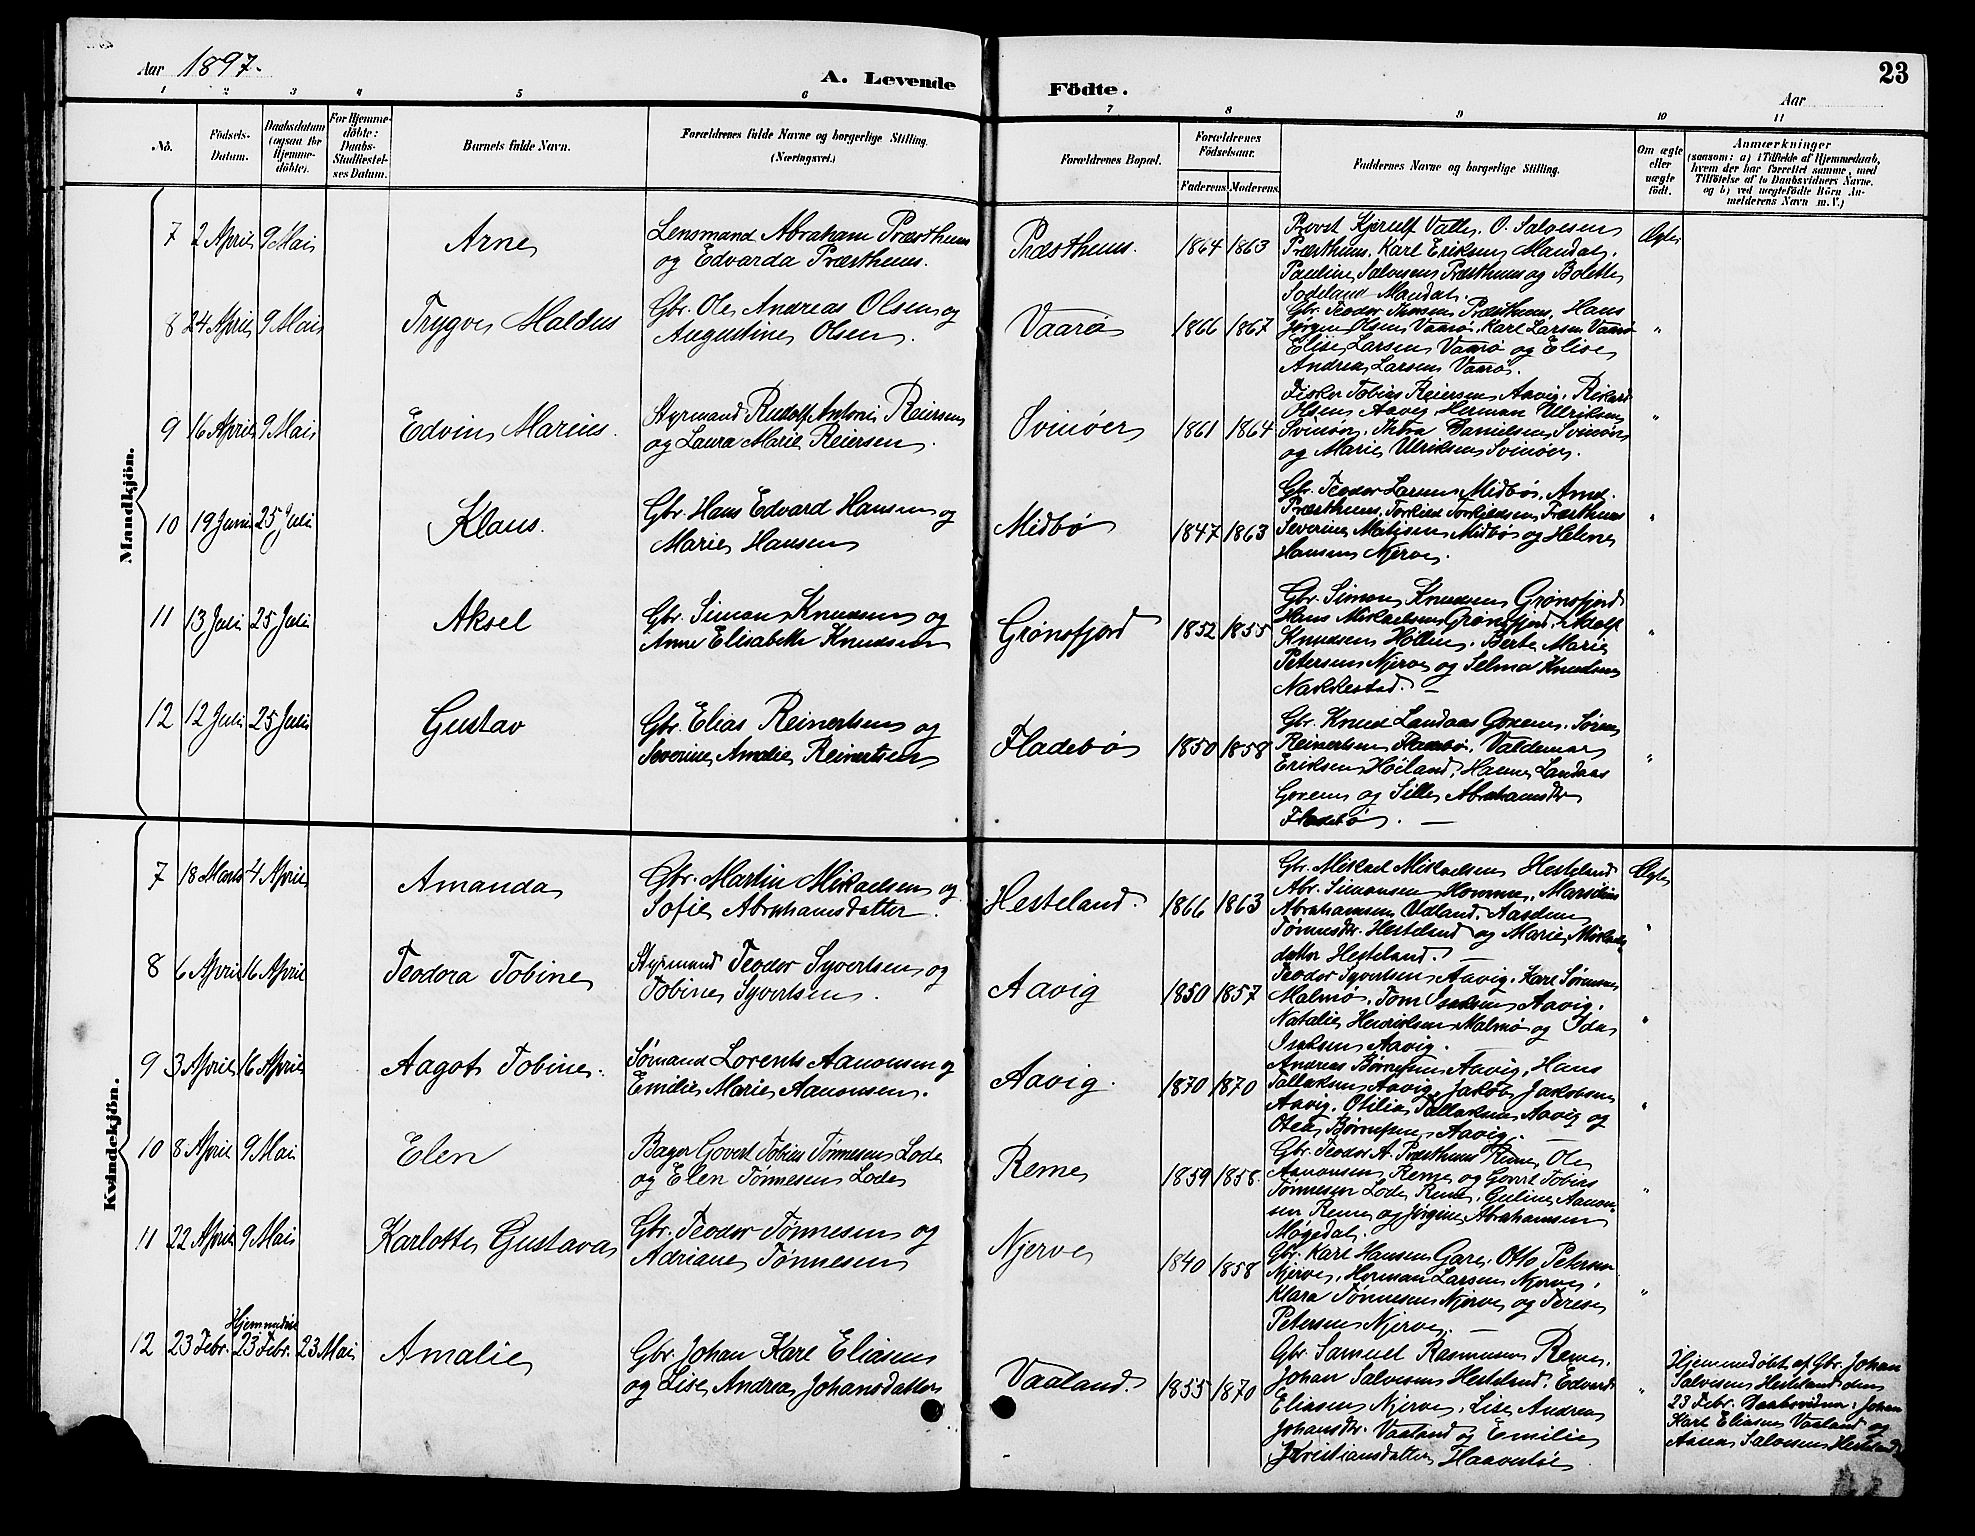 Aar 1897.
A. Levende Födte.
23
Aar
1 2 3 4 5 6 7 8 9 10 11
No.
Födsels-Datum.
Daabsdatum (ogsaa for Hjemme-döbte).
For Hjemme-döbte: Daabs-Stadfæstel-ses Datum.
Barnets fulde Navn.
Forældrenes fulde Navne og borgerlige Stilling. (Næringsvei.)
Forældrenes Bopæl.
Forældrenes Födselsaar.
Faderens. Moderens.
Faddernes Navne og borgerlige Stilling.
Om ægte eller uægte födt.
Anmærkninger
(saasom: a) i Tilfælde af Hjemmedaab,
hvem der har forrettet samme, med
Tilföielse af to Daabsvidners Navne,
og b) ved uægtefödte Börn An-
melderens Navn m. V.)
Mandkjön.
7 2 April 9 Mai Arne
Lensmand Abraham Præsthuus
og Edvarda Præsthuus.
Præsthuus. 1864 1863
Provst Kjerulf Valle, O. Salvesen
Præsthuus, Karl Eriksen Mandal,
Pauline Salvesen Præsthuus og Bolette
Sodeland Mandal.
Ægte
8 24 April 9 Mai Trygve Maldus
Gbr. Ole Andreas Olsen og
Augustine Olsen.
Vaarø 1866 1867
Gbr. Teodor Thorsen Præsthuus, Hans
Jørgen Olsen Vaarø, Karl Larsen Vaarø
Elise Larsen Vaarø og Elise
Andrea Larsen Vaarø.
"
9 16 April 9 Mai Edvin Marius.
Styrmand Rudolf Antoni Reiersen
og Laura Marie Reiersen.
Svinøer 1861 1864
Fisker Tobias Reiersen Aavig, Rikard
Olsen Aavig Herman Ulriksen
Svinøer, Danielsen Svinøer
og Marie Ulriksen Svinøer.
"
10 19 Juni 25 Juli Klaus.
Gbr. Hans Edvard Hansen og
Marie Hansen
Midbø 1847 1863
Gbr. Teodor Larsen Midbø,
Præsthuus, Torkild Torkildsen Præsthuus
Severine Matisen Midbø og Helene
Hansen Njerve.
"
11 13 Juli 25 Juli Aksel
Gbr. Simon Knudsen og
Anne Elisabeth Knudsen
Grønsfjord 1852 1855
Gbr. Simon Knudsen Grønsfjord
Hans Mikaelsen Grønsfjord, Adolf
Knudsen Høllen, Berte Marie
Petersen Njerve og Selma Knudsen
Nakkestad. —
"
12 12 Juli 25 Juli Gustav
Gbr. Elias Reinertsen og
Severine Amalie Reinertsen
Fladebø 1850 1858
Gbr. Knud Landaas Goven, Søren
Reinertsen Fladebø, Valdemar
Eriksen Høiland, Hanne Landaas
Goven og Sille Abrahamsdtr
Fladebø. —
"
Kvindekjön.
7 18 Marts 4 April Amanda
Gbr. Martin Mikaelsen og
Sofie Abrahamsdatter.
Hesteland. 1866 1863
Gbr. Mikael Mikaelsen Hesteland
Abr. Simonsen Homme, Marselius
Abrahamsen Udland, Aasdine
Tønnesdtr. Hesteland og Marie Mikaels
datter Hesteland. —
Ægte
"
8 6 April 16 April Teodora Tobine
Styrmand Teodor Syvertsen og
Tobine Syvertsen.
Aavig 1850 1857
Teodor Syvertsen Aavig, Karl Sørensen
Malmø, Tom Isaksen Aavig,
Natalie Henriksen Malmø og Ida
Isaksen Aavig. —
"
9 3 April 16 April Aagot Tobine.
Sømand Lorents Aanonsen og
Emilie Marie Aanonsen.
Aavig. 1870 1870
Andreas Børresen Aavig, Hans
Tallaksen Aavig, Jakob Jakobsen
Aavig, Otilia Tallaksen Aavig og
Otea Børresen Aavig. —
"
10 8 April 9 Mai Elen
Bager Govert Tobias Tønnesen Lode
og Elen Tønnesen Lode
Reme 1859 1858.
Gbr. Teodor A. Præsthuus Reme, Ole
Aanonsen Reme og Govert Tobias
Tønnesen Lode Reme, Guline Aanon-
sen Reme og Jørgine Abrahamsen
Møgedal.
"
11 22 April 9 Mai Karlotte Gustava
Gbr. Teodor Tønnesen og
Adriane Tønnesen
Njerve 1840 1858
Gbr. Karl Hansen Gare, Otto Petersen
Njerve, Herman Larsen Njerve,
Klara Tønnesen Njerve og Terese
Petersen Njerve. —
"
12 23 Febr. Hjemmedøbt 23 Febr. 23 Mai Amalie
Gbr. Johan Karl Eliasen
og Lise Andrea Johansdatter
Vaaland. 1855 1870
Gbr. Samuel Rasmussen Reme,
Johan Salvesen Hesteland, Edvard
Eliasen Njerve, Lise Andrea
Johansdtr. Vaaland og Emilie
Kristiansdatter
"
Hjemmedøbt af Gbr. Johan
Salvesen Hesteland den
23 Febr. Daabsvidner: Johan
Karl Eliasen Vaaland og
Aasea Salvesen Hesteland